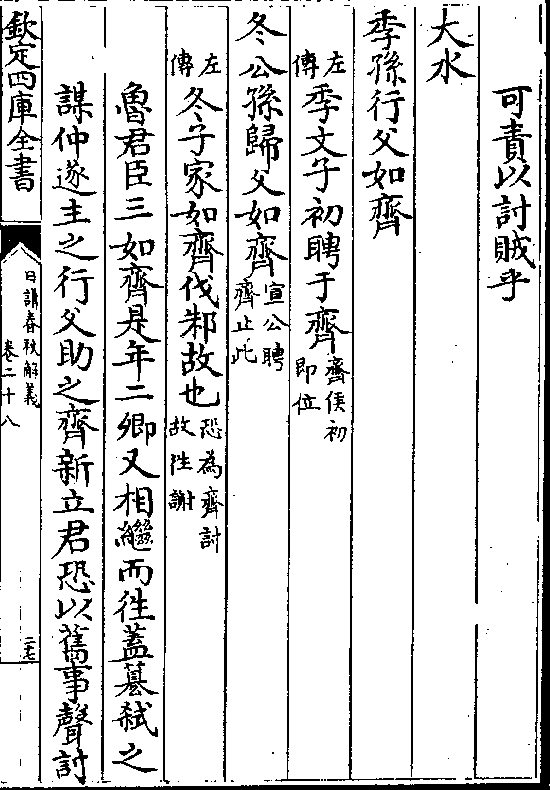 可責以討賊乎
大水
季孫行父如齊
左傳季文子初聘于齊齊侯初即位
冬公孫歸父如齊宣公聘齊止此
左傳冬子家如齊伐邾故也恐為齊討故往謝
魯君臣三如齊是年二卿又相繼而往蓋簒弑之
謀仲遂主之行父助之齊新立君恐以舊事聲討
欽定四庫全書
日講春秋解義
卷二十八
二七